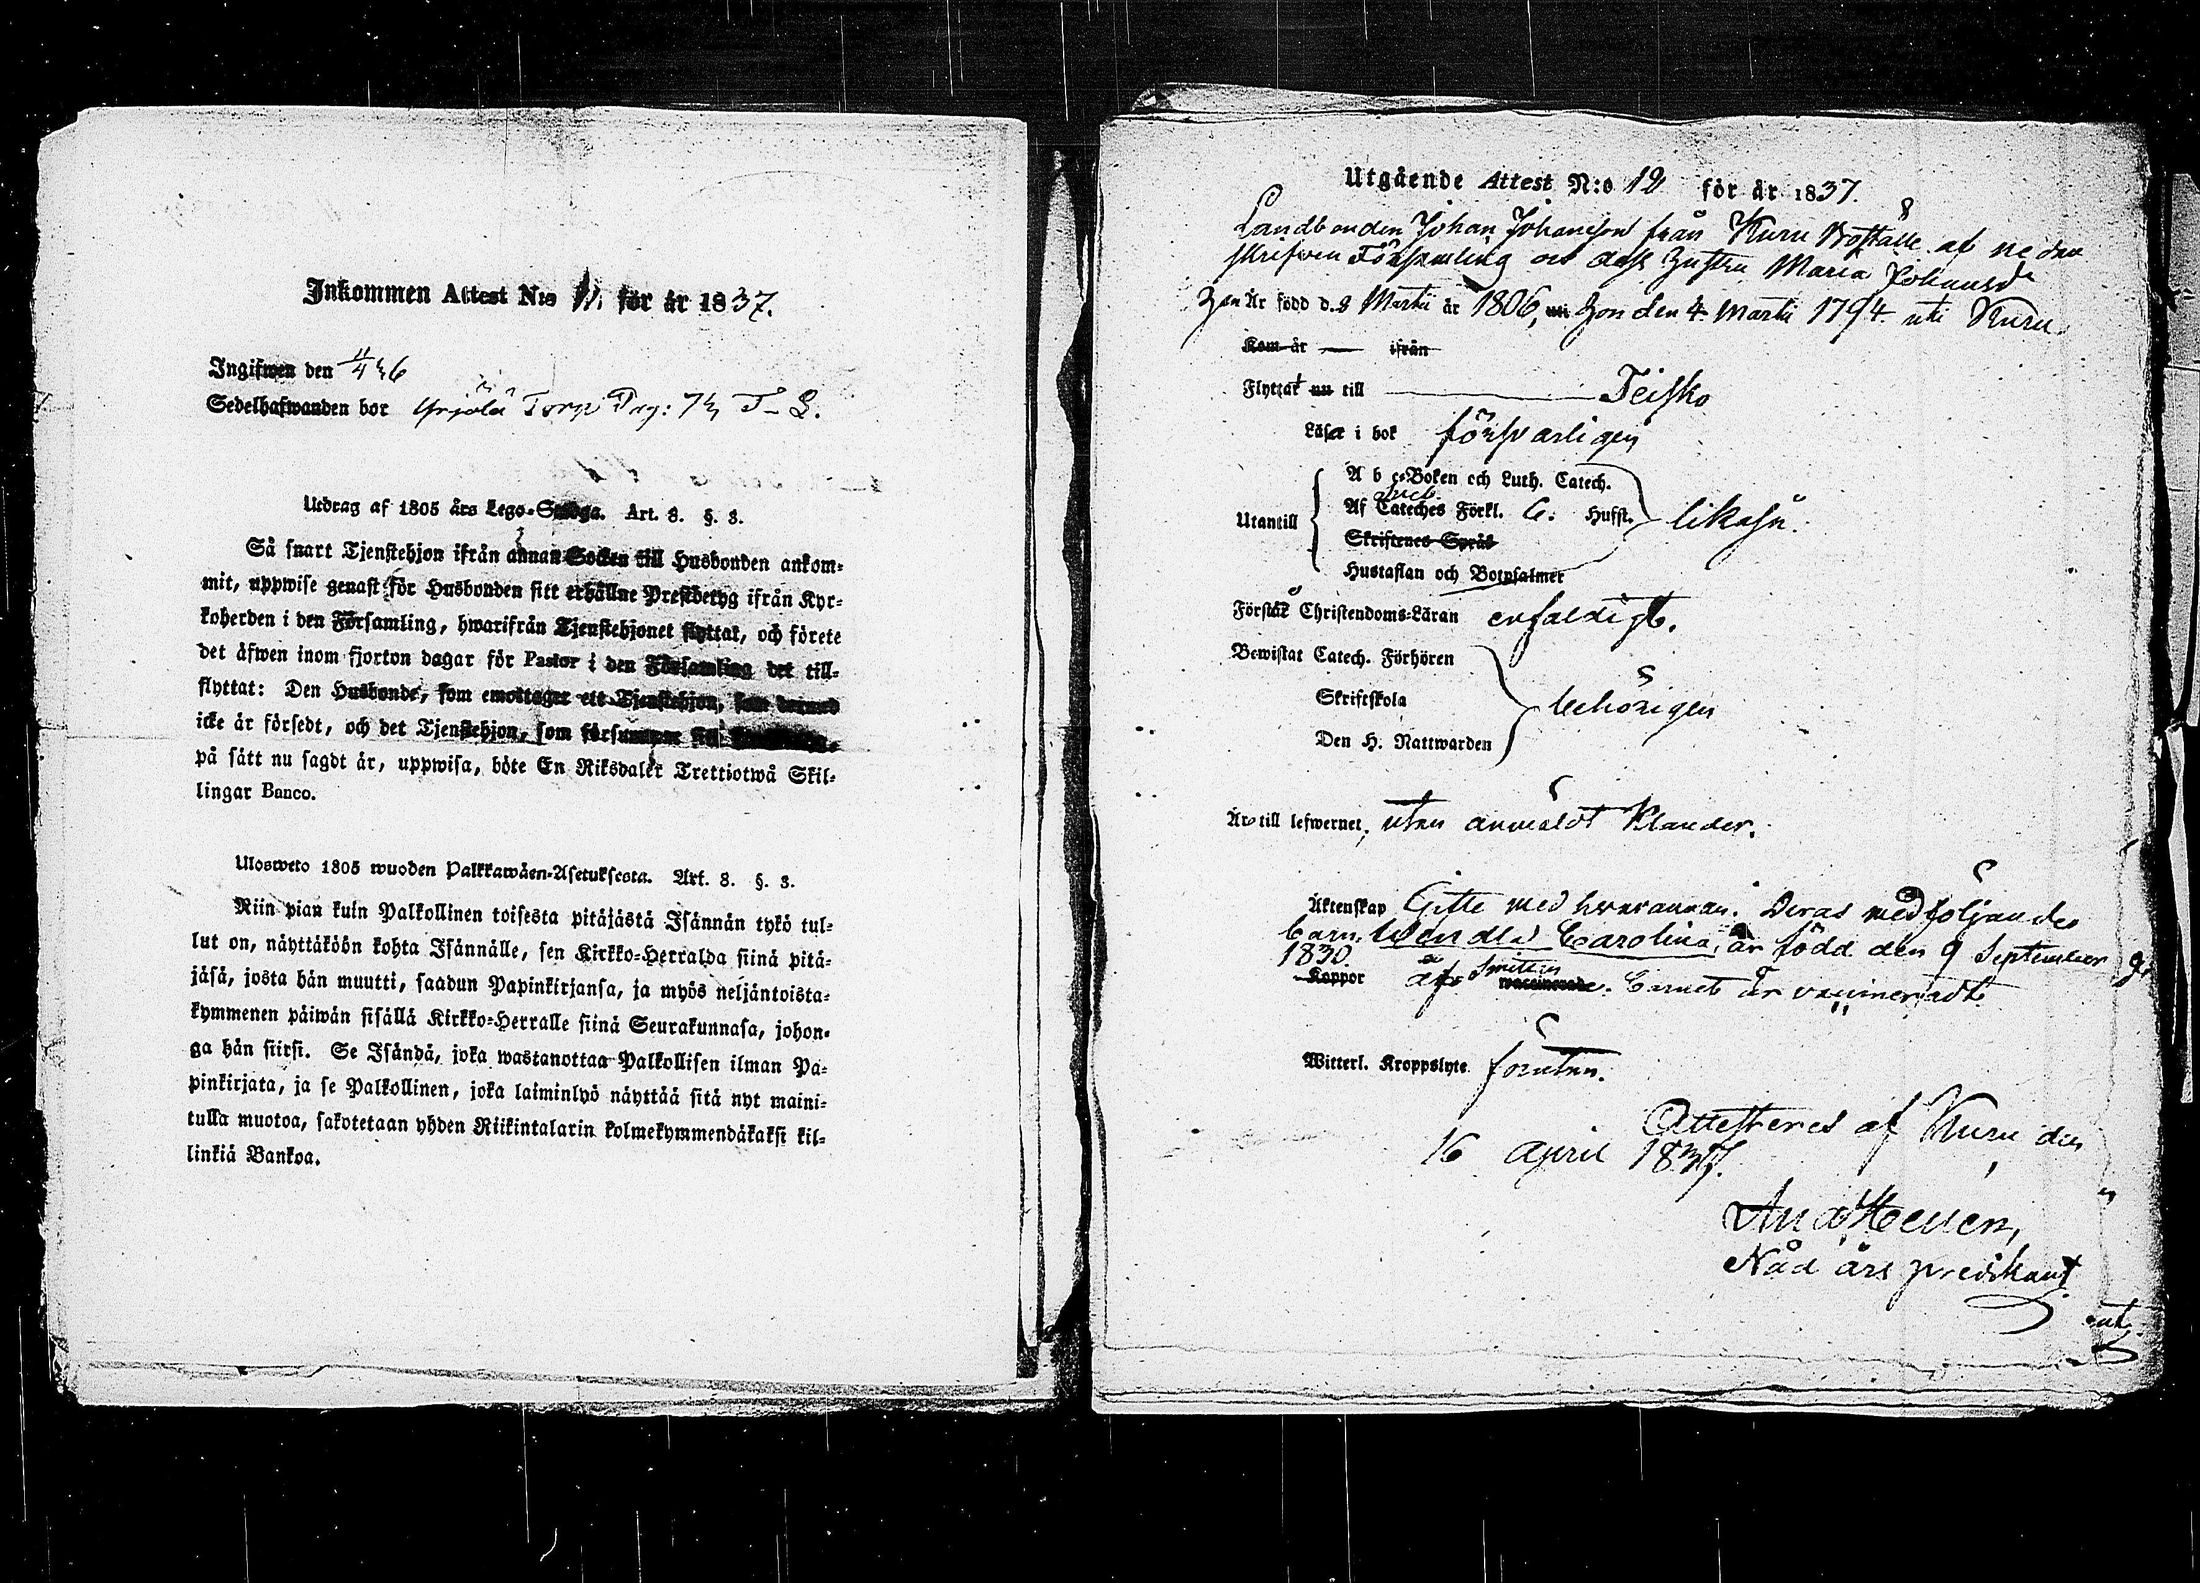 Inkommen Attest N:o 11. för år 1837.
Ingifwen den 4/4 36
Sedelhafwanden bor Yrjölä Torp Pag: 73 T- L.
Utdrag af 1805 års Lego-Stadga. Art. 8. §. 3.
Så snart Tjenstehjon ifrån annan Socken till Husbonden ankom-
mit, uppwise genast för Husbonden sitt erhållne Prestbetyg ifrån Kyr-
koherden i den Församling, hwarifrån Tjenstehjonet flyttat, och förete
det äfwen inom fjorton dagar för Pastor i den Församling det till-
flyttat: Den Husbonde, som emottager ett Tjenstehjon, som dermed
icke är försedt, och det Tjenstehjon, som försummar
på sätt nu sagdt är, uppwisa, böte En Riksdaler Trettiotwå Skil-
lingar Banco.
Ulosweto 1805 wuoden Palkkawäen-Asetuksesta. Art. 8. §. 3.
Niin pian kuin Palkollinen toisesta pitäjästä Isännän tykö tul-
lut on, näyttäköön kohta Isännälle, sen Kirkko-Herralda siinä pitä-
jäsä, josta hän muutti, saadun Papinkirjansa, ja myös neljäntoista-
kymmenen päiwän sisällä Kirkko-Herralle siinä Seurakunnasa, johon-
ga hän siirsi. Se Isändä, joka wastanottaa Palkollisen ilman Pa-
pinkirjata, ja se Palkollinen, joka laiminlyö näyttää sitä nyt maini-
tulla muotoa, sakotetaan yhden Riikintalarin kolmekymmendäkaksi kil-
linkiä Bankoa.
Utgående Attest N:o 12 för år 1837.
Landbonden Johan Johansson från Kuru Boställe af nedan
skrifven Församling och dess hustru Maria Johansd
han är född d. 9 Martii år 1806, hon den 4. Martii 1794. uti Kuru.
Kom år — ifrån
Flyttat nu till — Teisko
Läser i bok försvarligen
Utantill
A b c-Boken och Luth. Catech.
Af Cateches Förkl. 6. Hufst. likaså.
Skriftenes Språk
Hustaflan och Botpsalmer
Förstår Christendoms-Läran enfaldigt.
Bewistat Catech. Förhören
Skriftskola behörigen
Den H. Nattwarden
Är till lefwernet, utan anmäldt klander.
Äktenskap Gifte med hvarannan. Deras medföljande
barn Wendla Carolina, är född den 9 September
1830.
Koppor äfv Smitten vaccinerade. Barnet är vaccineradt
Witterl. Kroppslyte förutan.
Attesteres af Kuru den
16 April 1837.
And Hellen,
Nåd års predikant